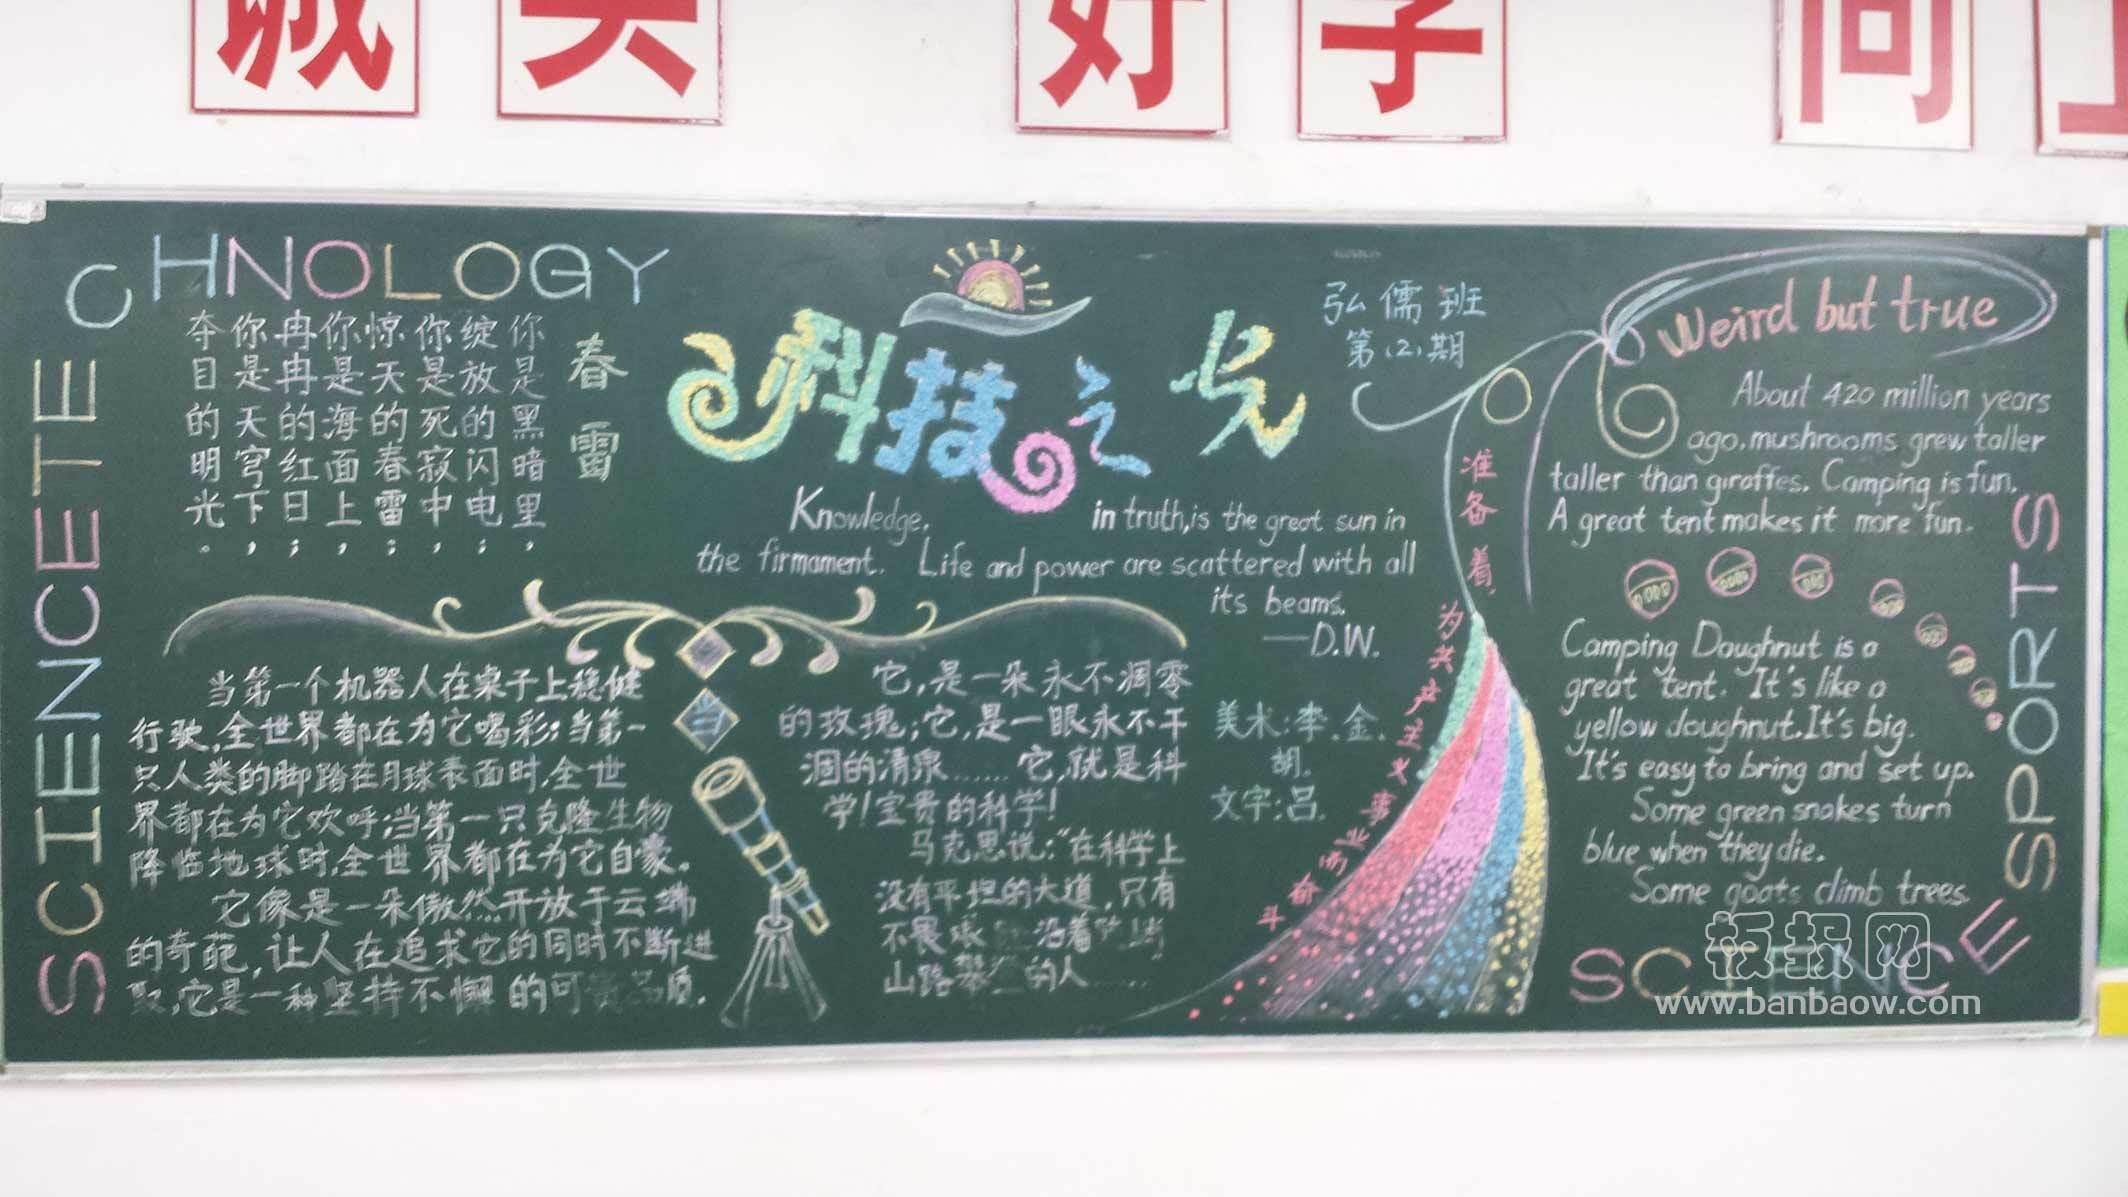 诚 实 好 学 向 上
SCIENCE TECHNOLOGY
春雷
你是黑暗里，
绽放的闪电；
你是死寂中，
惊天的春雷；
你是海面上，
冉冉的红日；
你是天穹下，
夺目的明光。
科技之光
弘儒班
第(2)期
Knowledge, in truth, is the great sun in
the firmament. Life and power are scattered with all
its beams.
—D.W.
当第一个机器人在桌子上稳健
行驶,全世界都在为它喝彩;当第一
只人类的脚踏在月球表面时,全世
界都在为它欢呼;当第一只克隆生物
降临地球时,全世界都在为它自豪。
它像是一朵傲然开放于云端
的奇葩,让人在追求它的同时不断进
取,它是一种坚持不懈的可贵品质.
当
它,是一朵永不凋零
的玫瑰;它,是一眼永不干
涸的清泉……它,就是科
学!宝贵的科学!
马克思说:"在科学上
没有平坦的大道,只有
不畏 沿着
山路攀 的人……
美术:李.金.
胡.
文字:吕.
准备着,
为共产主义事业而奋斗
Weird but true
About 420 million years
ago. mushrooms grew taller
taller than giraffes. Camping is fun.
A great tent makes it more fun.
Camping Doughnut is a
great tent. It's like a
yellow doughnut. It's big.
It's easy to bring and set up.
Some green snakes turn
blue when they die.
Some goats climb trees.
SPORTS
SCIENCE
板报网
www.banbaow.com